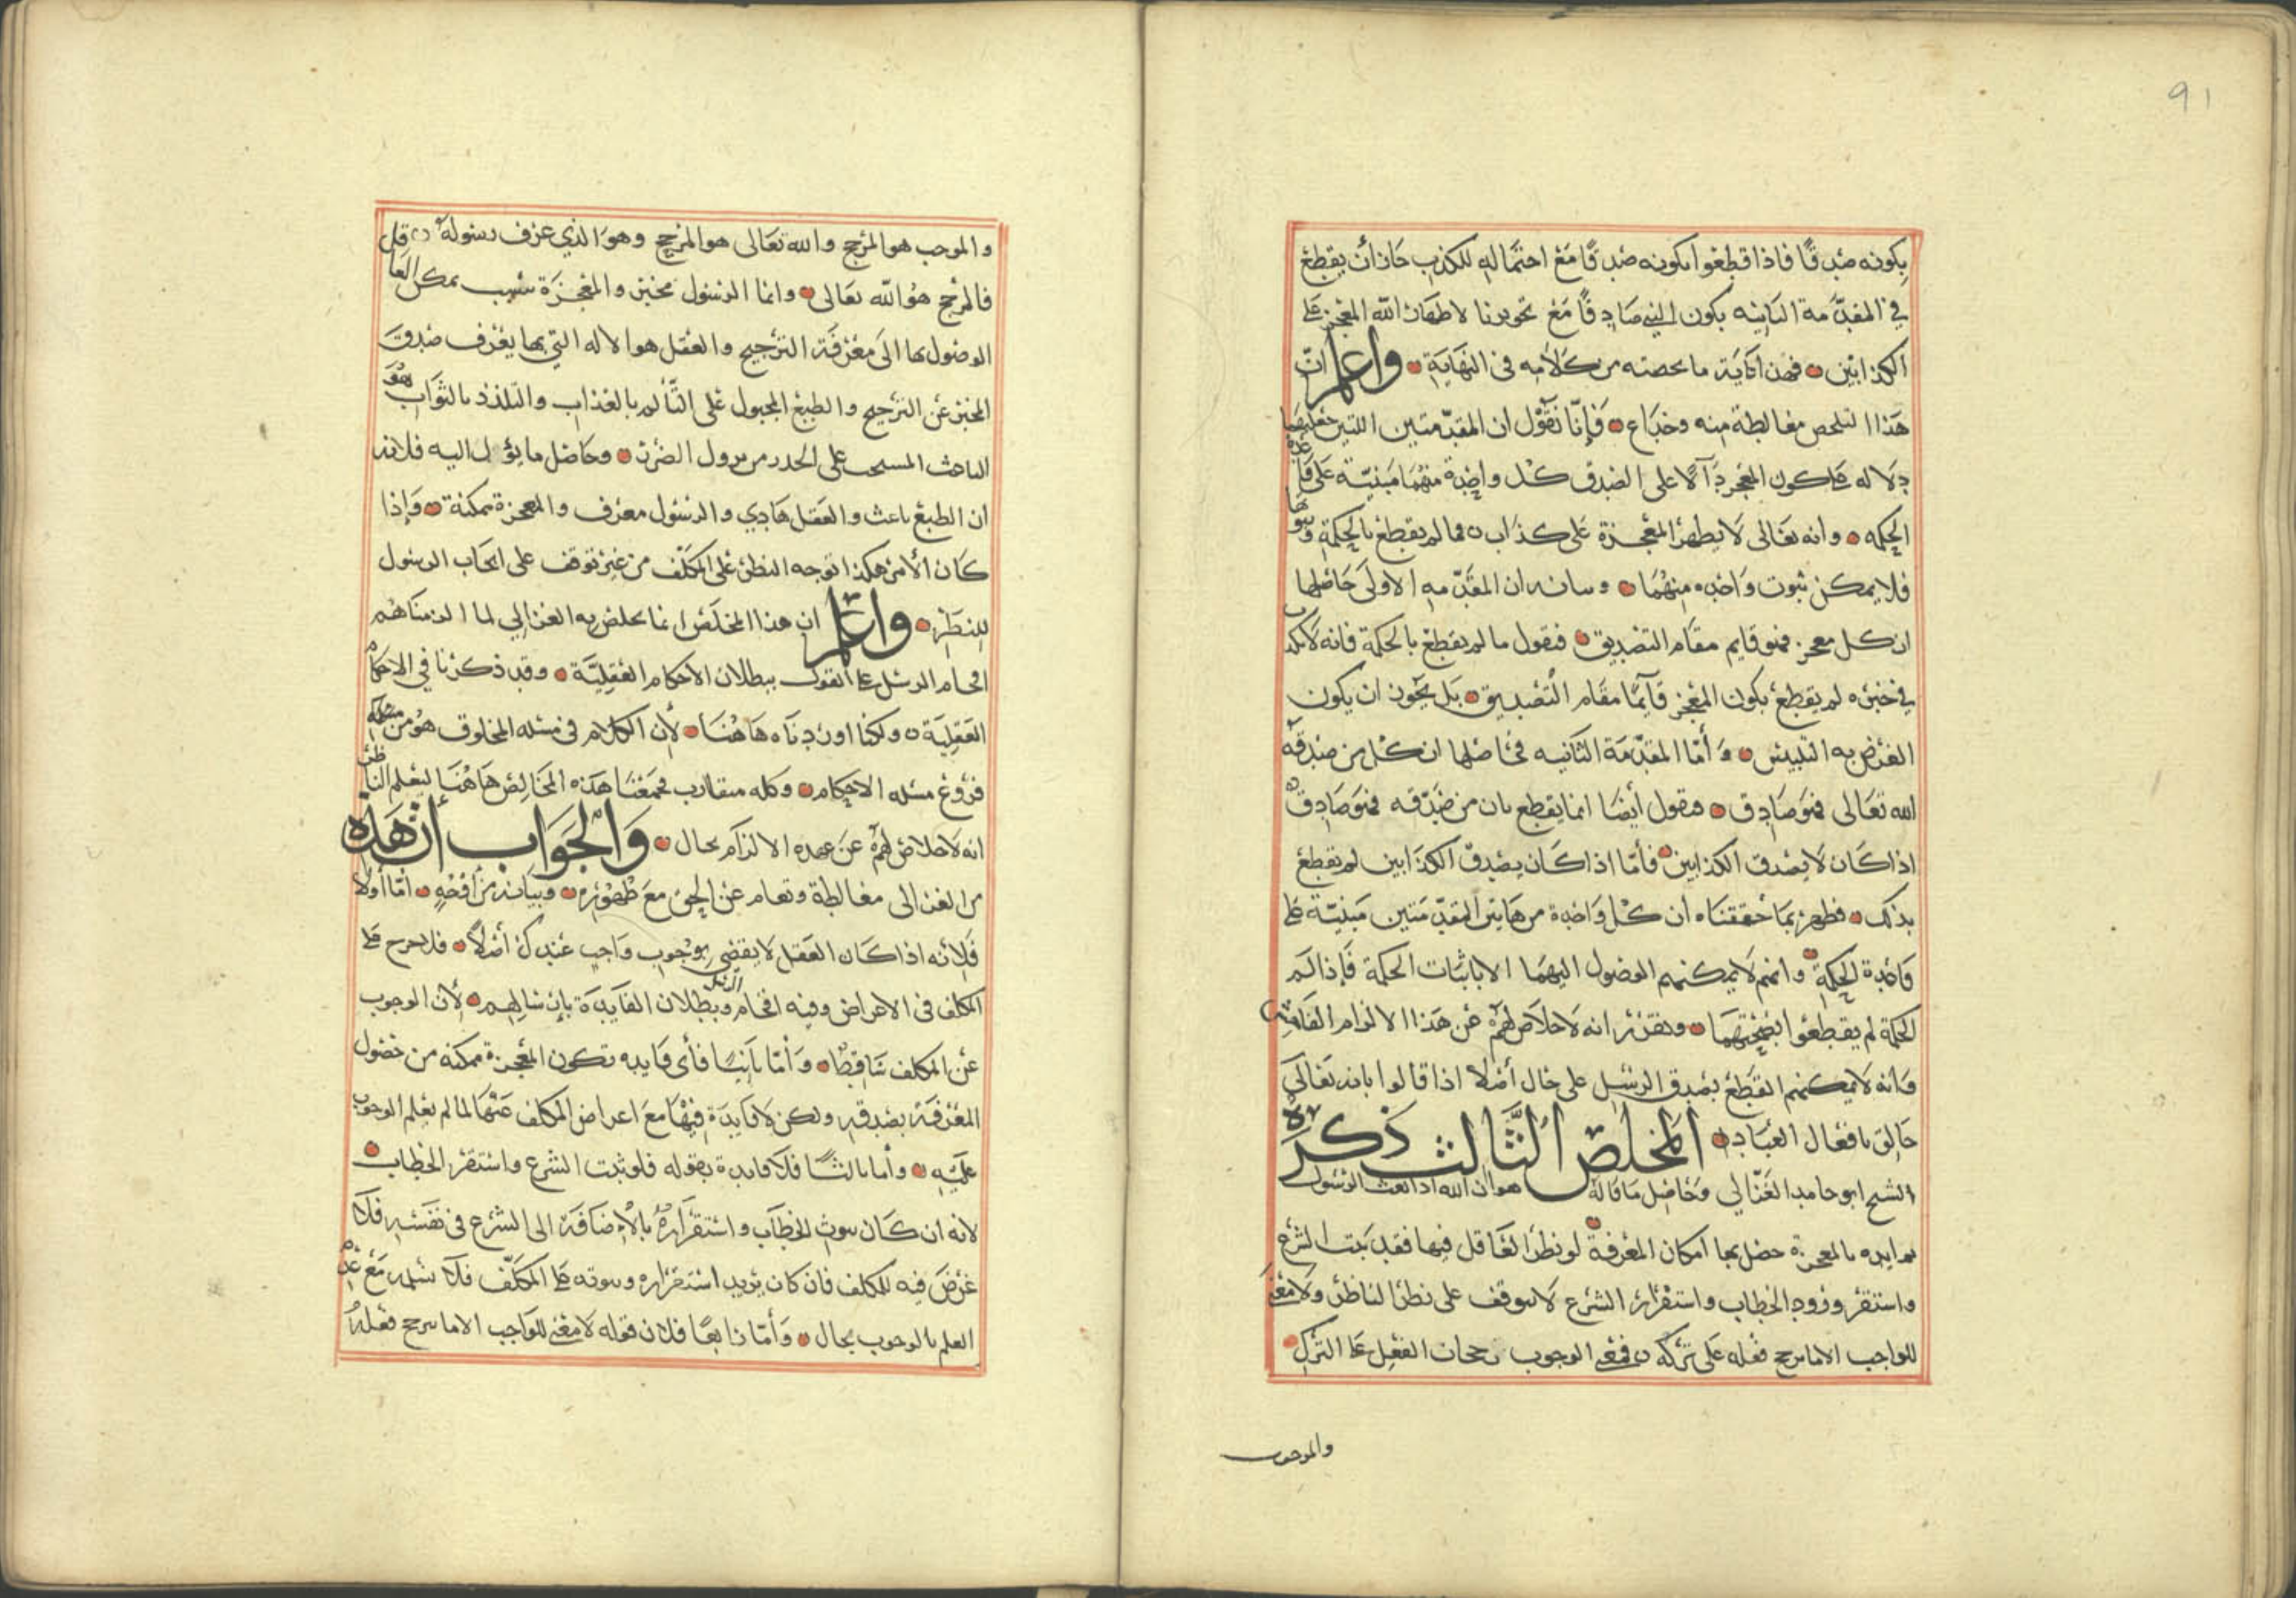 91
بكونه صدقًا فاذا قطعوا بكونه صدقًا مع احتماله للكذب جاز أن يقطع
في المقدمة الثانيه بكون النبي صادقًا مع تجويزنا لاظهار الله المعجز على
الكذابين فهذا غاية ما لخصته من كلامه في النهاية واعلم انّ
هذا التلخيص مغالطة منه وخداع فإنّا نقول ان المقدّمتين اللتين جعلهما
دلاله على كون المعجز دآلًا على الصدق كل واحدة منهما مبنيّة على قاعدة
الحكمه وانه تعالى لا يظهر المعجزة على كذاب فما لم يقطع بالحكمة وثبوتها
فلا يمكن ثبوت واحده منهما وبيانه ان المقدّمه الاولى حاصلها
ان كل معجز فهو قايم مقام التصديق فنقول ما لم يقطع بالحكمة فانه لا يكذب
في خبره لم يقطع بكون المعجز قآيمًا مقام التصديق بل يجوز ان يكون
الغرض به التلبيس وأمّا المقدّمة الثانيه فحاصلها ان كل من صدقه
الله تعالى فهو صادق فنقول أيضا انما يقطع بان من صدّقه فهو صادق
اذا كان لا يصدق الكذابين فأمّا اذا كان يصدق الكذابين لم يقطع
بذلك فظهر بما حققناه أن كل واحدة من هاتين المقدّمتين مبنيّة على
قاعدة الحكمة وانهم لا يمكنهم الوصول اليهما الا باثبات الحكمة فإذا لم
الحكمة لم يقطعوا بصحتهما وتقرر انه لا خلاص لهم عن هذا الالزام
وانه لا يمكنهم القطع بصدق الرسل على حال أصلًا اذا قالوا بانه تعالى
خالق لافعال العباد المخلص الثّالث ذكره
الشيخ ابو حامد الغزّالي وحاصل ما قاله هو ان الله اذا بعث الرسول
وايده بالمعجزة حصل بها امكان المعرفة لو نظر العاقل فيها فقد ثبت الشرع
واستقر ورود الخطاب واستقرار الشرع لا يتوقف على نظر الناظر ولا معنى
للواجب الا ما يرجح فعله على تركه فمعنى الوجوب رجحان الفعل على الترك
والموجب
والموجب هو المرجح والله تعالى هو المرجح وهو الذي عرف رسوله
فالمرجح هو الله تعالى وانما الرسول مخبر والمعجزة سبب يمكن العاقل
الوصول بها الى معرفة الترجيح والعقل هو الاله التي بها يعرف صدق
المخبر عن الترجيح والطبع المجبول على التّألم بالعذاب والتلذذ بالثواب هو
الباعث المستحث على الحذر من نزول الضرر وحاصل ما يؤل اليه فلانه
ان الطبع باعث والعقل هادي والرسول معرف والمعجزة ممكنة وإذا
كان الأمر هكذا توجه النظر على المكلّف من غير توقف على ايجاب الرسول
للنظر واعلم ان هذا المخلص انما يخلص به الغزالي لما الزمناهم
افحام الرسل على القول ببطلان الاحكام العقليّة وقد ذكرنا في الاحكام
العقلية ولكنا اوردناه هاهنا لأن الكلام في مسئله المخلوق هو من مسئلة
فروع مسئله الاحكام وكله متقارب فجمعنا هذه المخالص هاهنا ليعلم الناظر
انه لا خلاص لهم عن عهده الالزام بحال والجواب أن هذه
من الغزالى مغالطة وتعام عن الحق مع ظهوره وبيانه من أوجه امّا أولا
فلأنه اذا كان العقل لا يقضي بوجوب واجب عندك أصلًا فلا حرج على
المكلف في الاعراض وفيه افحام الرسل وبطلان الفايدة بإرسالهم لأن الوجوب
عن المكلف ساقط وأمّا ثانيًا فأي فايده تكون المعجزة ممكنه من حصول
المعرفة بصدقه ولكن لا فايدة فيها مع اعراض المكلف عنها لما لم يعلم الوجوب
عليه وأما ثالثًا فلا فايدة بقوله فلو ثبت الشرع واستقر الخطاب
لانه ان كان ثبوت الخطاب واستقراره بالإضافة الى الشرع في نفسه فلا
غرض فيه للمكلف فان كان يريد استقراره وثبوته على المكلّف فلا نسلمه مع عدم
العلم بالوجوب بحال وأمّا رابعًا فلان قوله لا معنى للواجب الا ما يرجح فعله